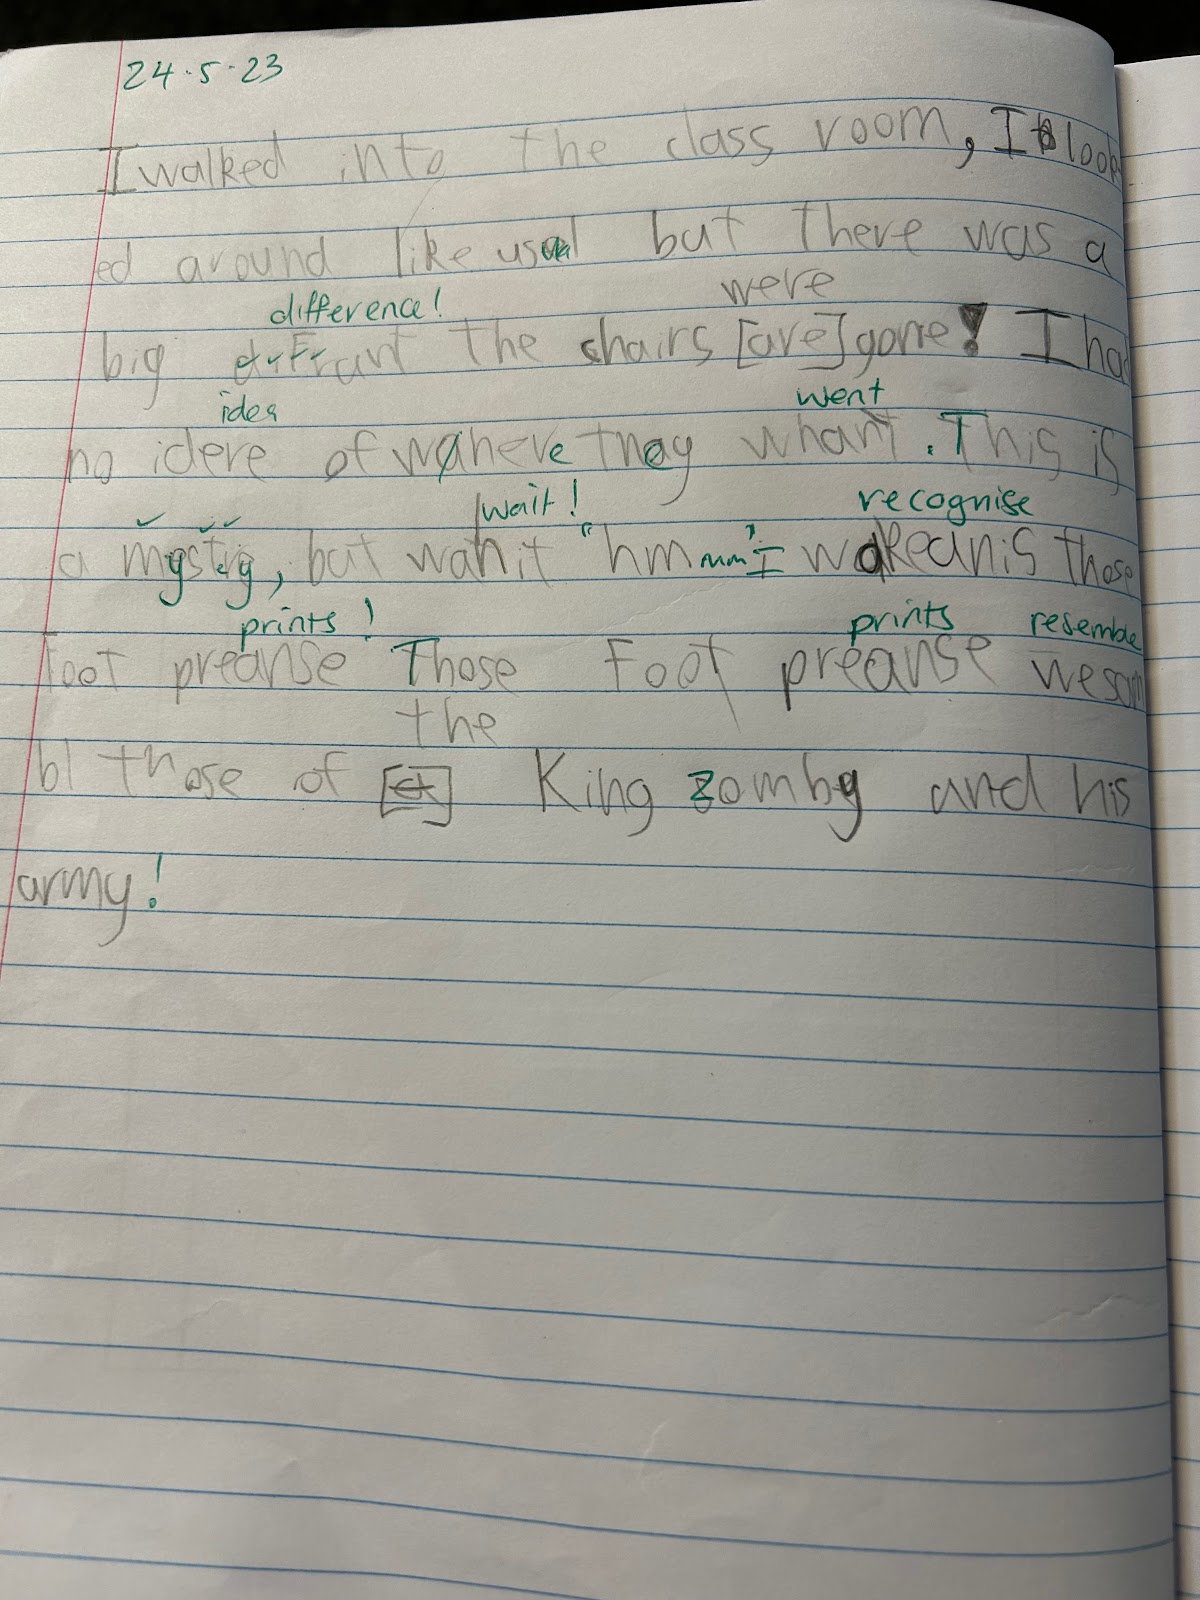 24.5.23
I walked into the class room, I look
ed around like usual but there was a
difference! were
big diffrant the chairs [are] gone! I had
idea went
no idere of wahere they whant. This is
wait! recognise
a mystery, but wahit "hmmmm" I wakeanis those
prints! prints resemble
foot preanse Those Foot preanse wesam
the
bl those of [a] King zomby and his
army!